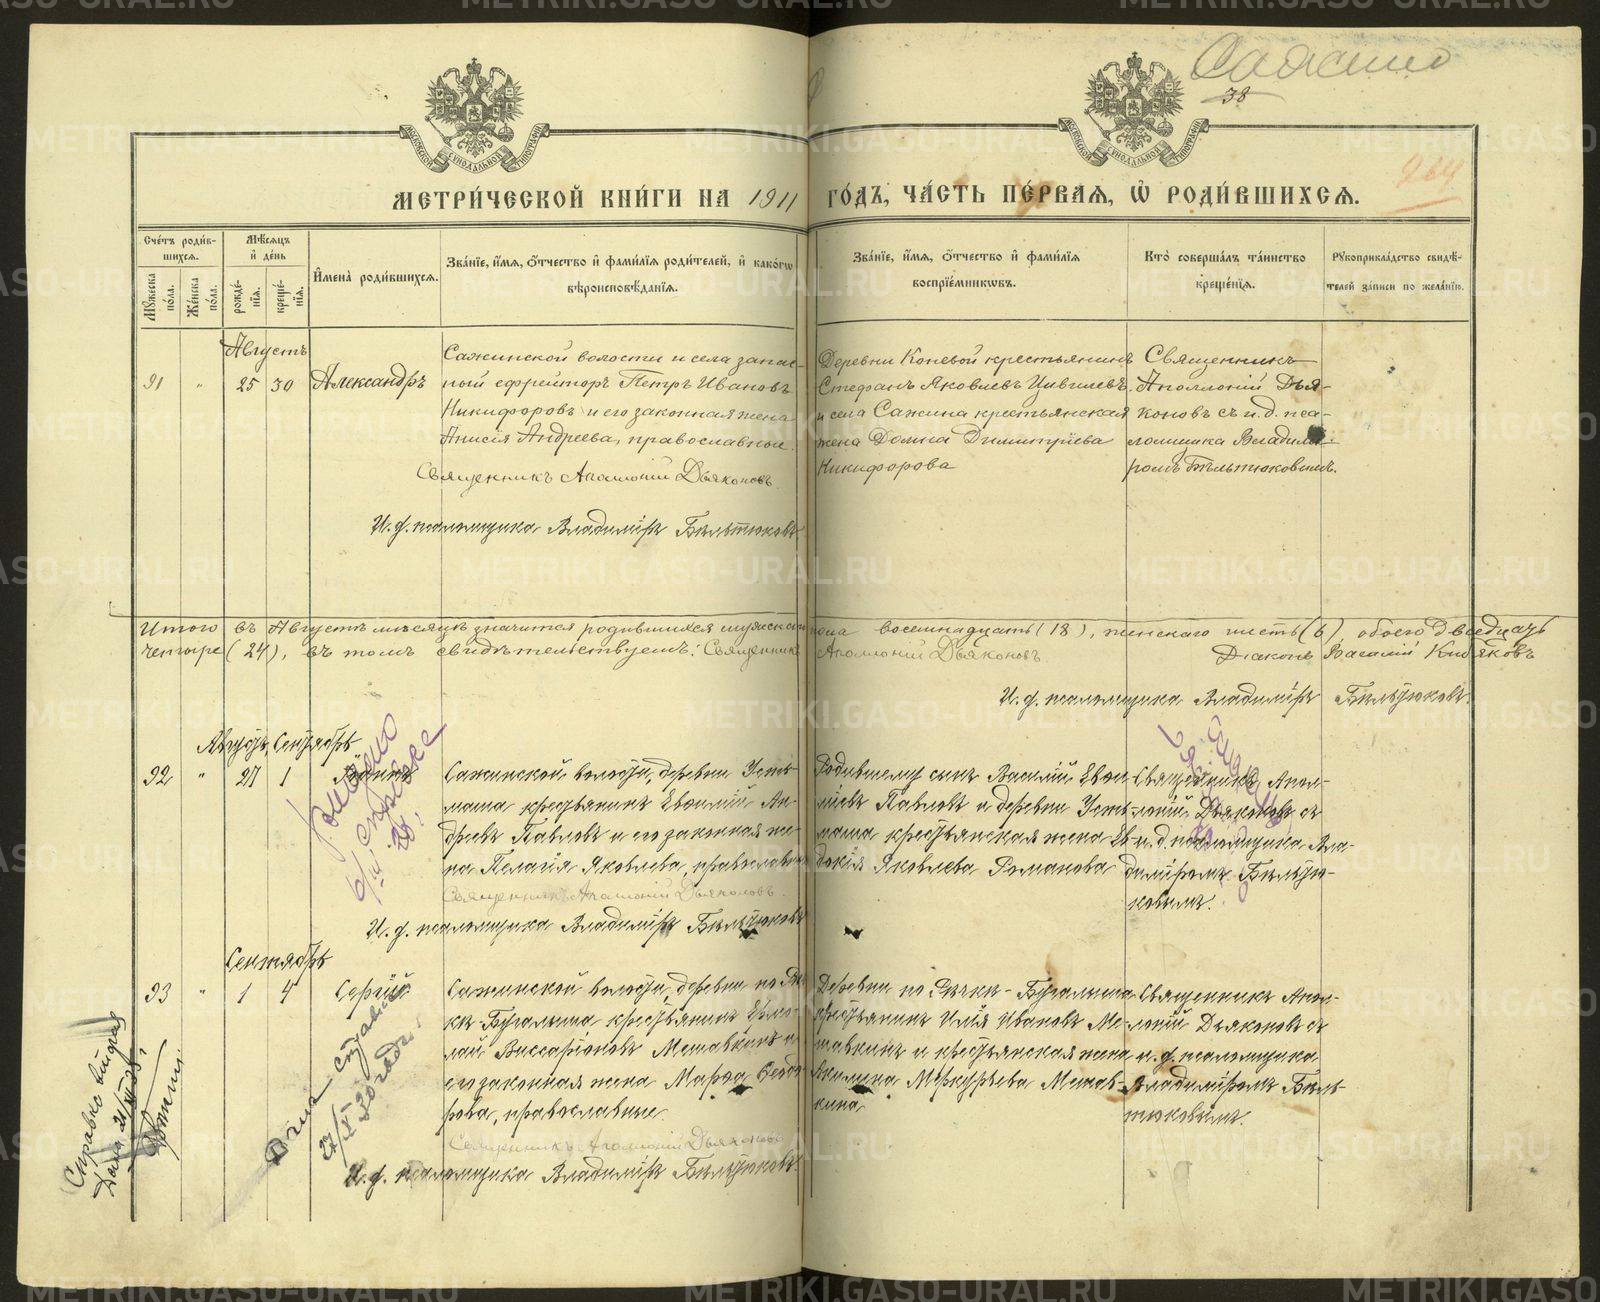 Сажино
38
264
МЕТРИ́ЧЕСКОЙ КНИ́ГИ НА 1911 ГО́ДЪ, ЧА́СТЬ ПЕ́РВАЯ, Ѡ҆ РОДИ́ВШИХСЯ.
Сче́тъ роди́вшихся.
Мꙋ́жеска по́ла.
Же́нска по́ла.
Мѣ́сяцъ и҆ де́нь
рожде́нїя.
креще́нїя.
И҆мена̀ роди́вшихся.
Зва́нїе, и҆́мя, ѻ҆́тчество и҆ фами́лїя роди́телей, и҆ како́гѡ вѣроисповѣ́данїя.
Зва́нїе, и҆́мя, ѻ҆́тчество и҆ фами́лїя воспрїе́мникѡвъ.
Кто̀ соверша́лъ та́инство креще́нїя.
Рꙋкоприкла́дство свидѣ́телей за́писи по жела́нїю.
Августъ
91 " 25 30 Александръ
Сажинской волости и села запас-
ный ефрейторъ Петръ Ивановъ
Никифоровъ и его законная жена
Анисія Андреева, православные.
Священникъ Аполлоній Дьяконовъ
И. д. псаломщика Владиміръ Бѣльтюковъ
Деревни Коневой крестьянинъ
Стефанъ Яковлевъ
и села Сажина крестьянская
жена Домна Димитріева
Никифорова
Священникъ
Аполлоній Дья-
коновъ съ и. д. пса-
ломщика Владимі-
ромъ Бѣльтюковымъ.
Итого въ Августѣ мѣсяцѣ значится родившихся мужскаго пола восемнадцать (18), женскаго шесть (6), обоего двадцать
четыре (24), въ томъ свидѣтельствуемъ: Священникъ Аполлоній Дьяконовъ Діаконъ Василій
И. д. псаломщика Владиміръ Бѣльтюковъ.
Августъ, Сентябрь
92 " 27 1
Сажинской волости, деревни Усть-
маша крестьянинъ Евѳимій Ан-
дреевъ Павловъ и его законная же-
на Пелагія Яковлева, православные
Священникъ Аполлоній Дьяконовъ.
И. д. псаломщика Владиміръ Бѣльтюковъ
Родившему сынъ Василій Евѳи-
міевъ Павловъ и деревни Усть-
маша крестьянская жена Ев-
докія Яковлева Романова
Священникъ Апол-
лоній Дьяконовъ съ
и. д. псаломщика Вла-
диміромъ Бѣльтю-
ковымъ.
Сентябрь
93 " 1 4 Сергій
Сажинской волости, деревни по Рѣч-
кѣ-Бугалышъ крестьянинъ
Виссаріоновъ Мешавкинъ и
его законная жена Марѳа Ѳеодо-
рова, православные.
Священникъ Аполлоній Дьяконовъ
И. д. псаломщика Владиміръ Бѣльтюковъ
Деревни по Рѣчкѣ-Бугалышъ
крестьянинъ Илія Ивановъ Ме-
шавкинъ и крестьянская жена
Акилина Меркурьева Мешав-
кина
Священникъ Апол-
лоній Дьяконовъ съ
и. д. псаломщика
Владиміромъ Бѣль-
тюковымъ.
Справка выдана
METRIKI.GASO-URAL.RU